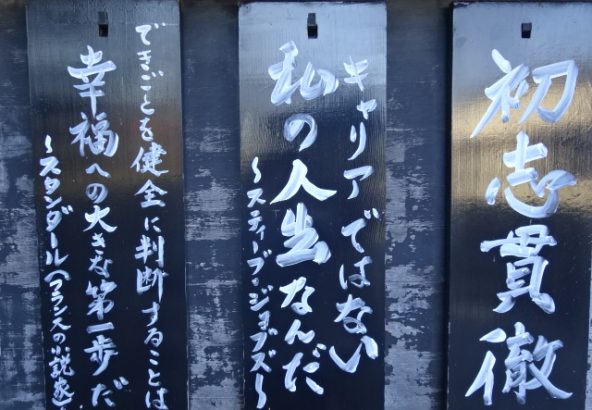 初志貫徹
キャリアではない
私の人生なんだ
～スティーブ・ジョブズ～
できごとを健全に判断することは
幸福への大きな第一歩だ
～スタンダール(フランスの小説家